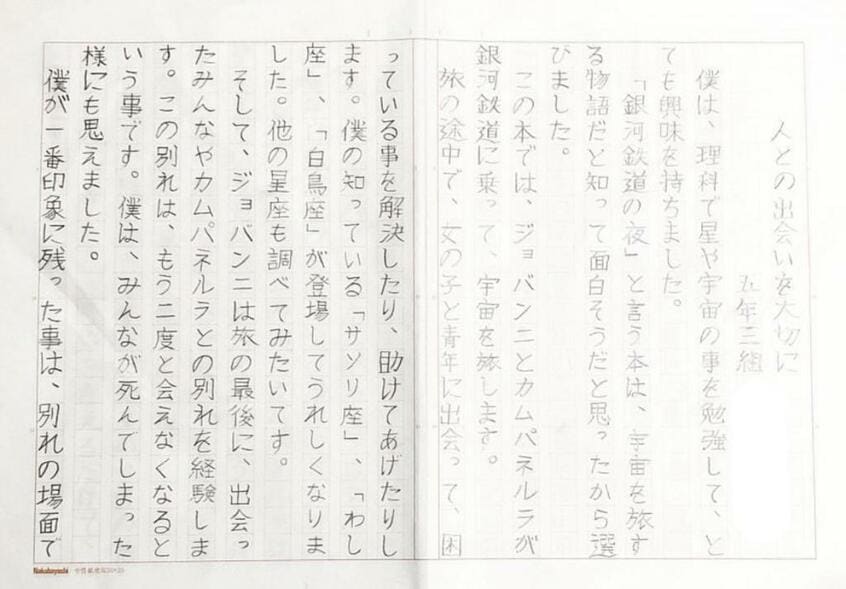 人との出会いを大切に
五年三組
僕は、理科で星や宇宙の事を勉強して、と
ても興味を持ちました。
「銀河鉄道の夜」と言う本は、宇宙を旅す
る物語だと知って面白そうだと思ったから選
びました。
この本では、ジョバンニとカムパネルラが
銀河鉄道に乗って、宇宙を旅します。
旅の途中で、女の子と青年に出会って、困
っている事を解決したり、助けてあげたりし
ます。僕の知っている「サソリ座」、「わし
座」、「白鳥座」が登場してうれしくなりま
した。他の星座も調べてみたいです。
そして、ジョバンニは旅の最後に、出会っ
たみんなやカムパネルラとの別れを経験しま
す。この別れは、もう二度と会えなくなると
いう事です。僕は、みんなが死んでしまった
様にも思えました。
僕が一番印象に残った事は、別れの場面で
Nakabayashi